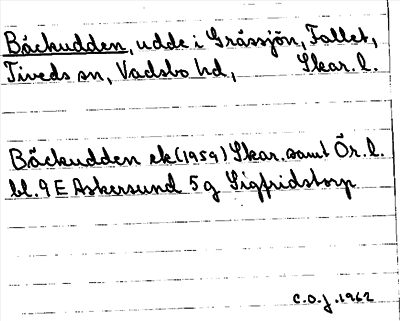 Bäckudden, udde i Gråssjön, Fallet,
Tiveds sn, Vadsbo hd, Skar. l.
Bäckudden ek (1959) Skar. samt Ör. l.
bl. 9 E Askersund 5 g Sigfridstorp
C.O.J. 1962